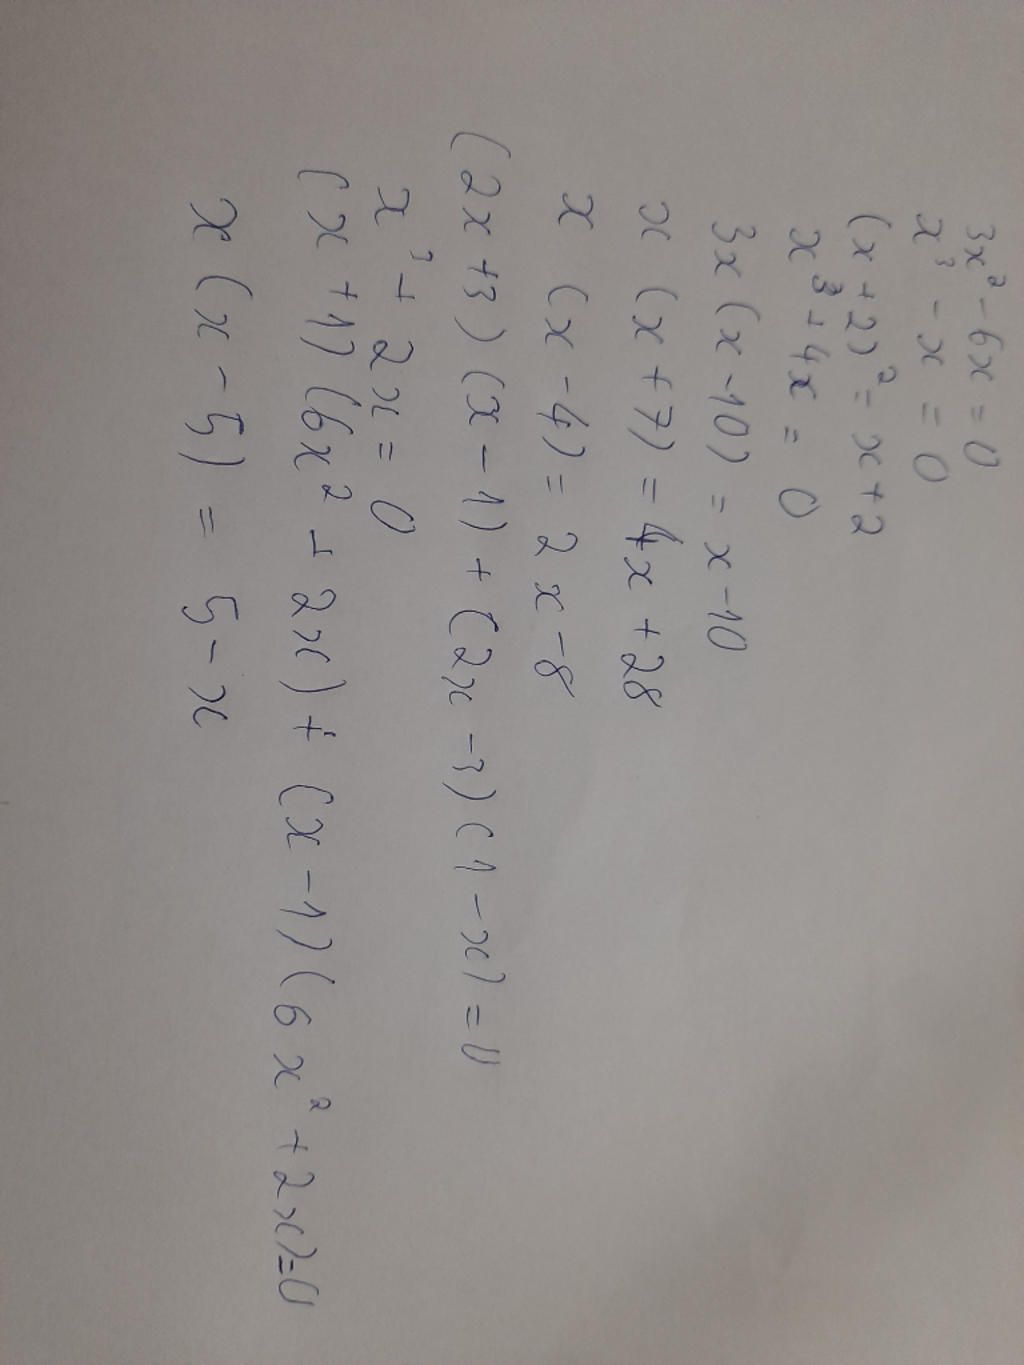 3x² - 6x = 0
x³ - x = 0
(x + 2)² = x + 2
x³ + 4x = 0
3x (x - 10) = x - 10
x (x + 7) = 4x + 28
x (x - 4) = 2x - 8
(2x + 3) (x - 1) + (2x - 3) (1 - x) = 0
x³ + 2x = 0
(x + 1) (6x² + 2x) + (x - 1) (6x² + 2x) = 0
x (x - 5) = 5 - x